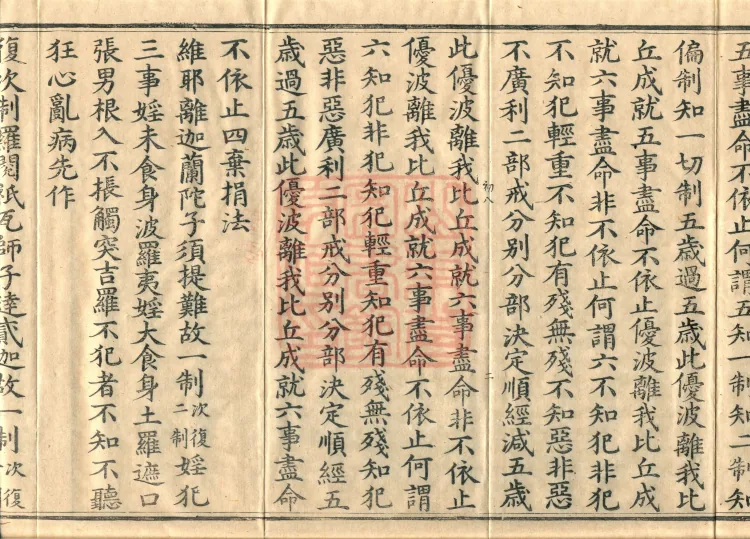 五事盡命不依止何謂五知制知一制知
偏制知一切制五歲過五歲此優波離我比
丘成就五事盡命不依止優波離我比丘成
就六事盡命非不依止何謂六不知犯非犯
不知犯輕重不知犯有殘無殘不知惡非惡
不廣利二部戒分別分部決定順經減五歲
初八 二
此優波離我比丘成就六事盡命非不依止
優波離我比丘成就六事盡命不依止何謂
六知犯非犯知犯輕重知犯有殘無殘知犯
惡非惡廣利二部戒分別分部決定順經五
歲過五歲此優波離我比丘成就六事盡命
不依止四棄捐法
維耶離迦蘭陀子須提難故一制次復二制婬犯
三事婬未食身波羅夷婬大食身土羅遮口
張男根入不掁觸突吉羅不犯者不知不聽
狂心亂病先作
復次制羅閱祇瓦師子達貳迦故一制次復